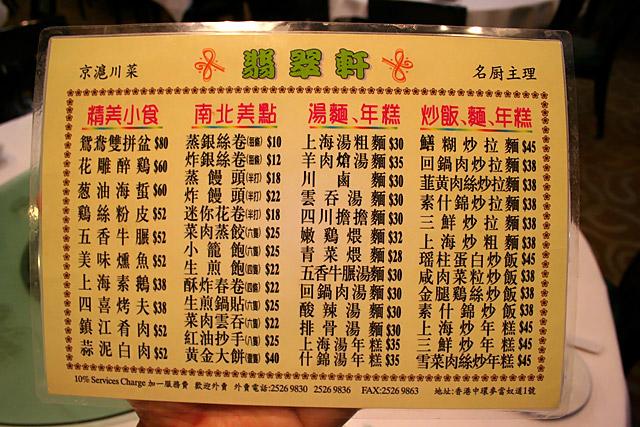 京滬川菜
翡翠軒
名厨主理
精美小食
鴛鴦雙拼盆 $80
花雕醉鷄 $60
葱油海蜇 $60
鷄絲粉皮 $52
五香牛腱 $52
美味燻魚 $52
上海素鵝 $38
四喜烤夫 $38
鎮江肴肉 $52
蒜泥白肉 $52
南北美點
蒸銀絲卷 $10
炸銀絲卷 $12
蒸饅頭(半打) $18
炸饅頭(半打) $22
迷你花卷(半打) $18
菜肉蒸餃(六隻) $25
小籠飽 $25
生煎飽 $22
酥炸春卷 $22
生煎鍋貼(六隻) $25
菜肉雲吞(六隻) $22
紅油抄手 $25
黃金大餅 $40
湯麵、年糕
上海湯粗麵 $30
羊肉熗湯麵 $35
川鹵麵 $30
雲吞湯麵 $30
四川擔擔麵 $30
嫩鷄煨麵 $32
青菜煨麵 $28
五香牛腱湯麵 $30
回鍋肉湯麵 $30
酸辣湯麵 $30
排骨湯麵 $30
上海湯年糕 $35
什錦湯年糕 $35
炒飯、麵、年糕
鱔糊炒拉麵 $45
回鍋肉炒拉麵 $38
韮黃肉絲炒拉麵 $38
素什錦炒拉麵 $38
三鮮炒拉麵 $38
上海炒粗麵 $38
瑤柱蛋白炒飯 $45
咸肉菜粒炒飯 $38
金腿鷄絲炒飯 $38
素什錦炒飯 $38
上海炒年糕 $45
三鮮炒年糕 $45
雪菜肉絲炒年糕 $45
10% Services Charge 加一服務費 歡迎外賣 外賣電話:2526 9830 2526 9836 FAX:2526 9863 地址:香港中環麥當奴道1號